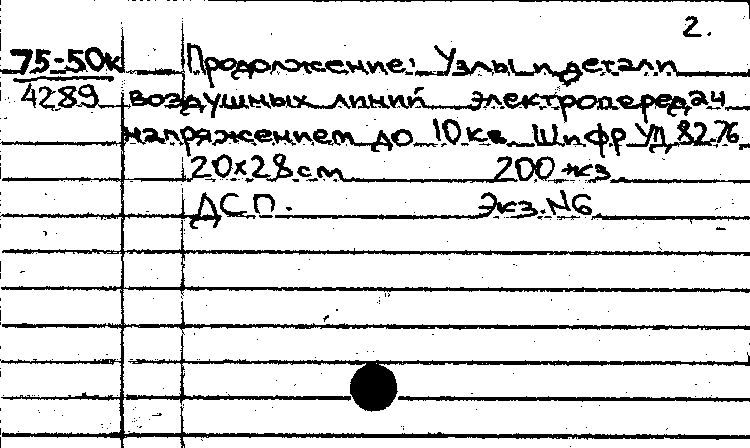 2.
75-50к Продолжение: Узлы и детали
4289 воздушных линий электропередач
напряжением до 10 кв. Шифр УП 82.76
20х28см 200 экз.
ДСП. Экз. N6